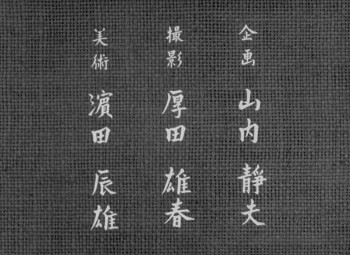 企画
山内静夫
撮影
厚田雄春
美術
濱田辰雄